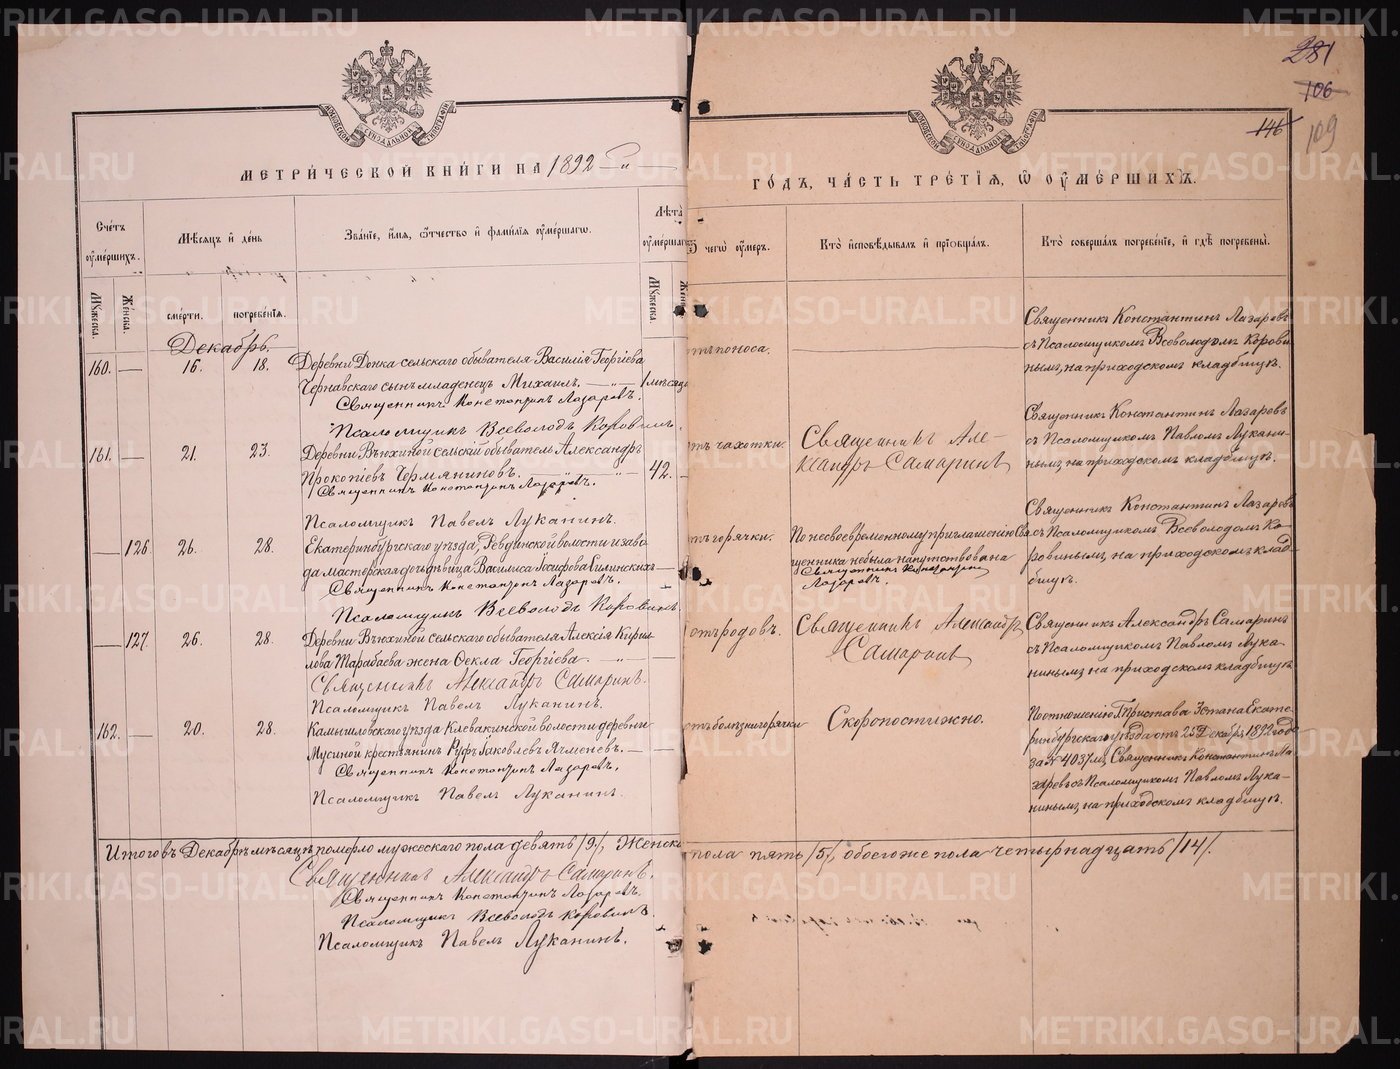 МЕТРИ́ЧЕСКОЙ КНИ́ГИ НА 1892 й
ГО́ДЪ, ЧА́СТЬ ТРЕ́ТІЯ, Ѽ ОУМЕ́РШИХЪ.
281
106
146
109
Сче́тъ оумершихъ.
Мѣсяцъ и день
Званіе, имя, отчество и фамилія оумершаго.
Лѣта оумершаго
чего оумеръ.
Кто исповѣдывалъ и пріобщалъ.
Кто совершалъ погребеніе, и гдѣ погребены.
Мужеска.
Женска.
смерти.
погребенія.
Мужеска.
Декабрь.
160. — 16. 18.
Деревни Донка сельскаго обывателя Василія Георгіева
Чернавскаго сынъ младенецъ Михаилъ. — 1 мѣсяца
Священникъ Константинъ Лазаревъ.
Псаломщикъ Всеволодъ Коровинъ.
отъ поноса.
Священникъ Константинъ Лазаревъ
съ Псаломщикомъ Всеволодомъ Корови-
нымъ, на приходскомъ кладбищѣ.
161. — 21. 23.
Деревни сельскій обыватель Александръ
Прокопіевъ Чермяниновъ. — 42.
Священникъ Константинъ Лазаревъ.
Псаломщикъ Павелъ Луканинъ.
отъ чахотки
Священникъ Але-
ксандръ Самаринъ
Священникъ Константинъ Лазаревъ
съ Псаломщикомъ Павломъ Лукани-
нымъ, на приходскомъ кладбищѣ.
— 126 26. 28.
Екатеринбургскаго уѣзда, Ревдинской волости и заво-
да мастерская дочь дѣвица Василиса Іосифова
Священникъ Константинъ Лазаревъ.
Псаломщикъ Всеволодъ Коровинъ.
отъ горячки.
По несвоевременному приглашенію Свя-
щенника небыла напутствована
Священникъ Константинъ
Лазаревъ.
Священникъ Константинъ Лазаревъ
съ Псаломщикомъ Всеволодомъ Ко-
ровинымъ, на приходскомъ клад-
бищѣ.
— 127. 26. 28.
Деревни сельскаго обывателя Алексія Кирил-
лова Тарабаева жена Ѳекла Георгіева. —
Священникъ Александръ Самаринъ.
Псаломщикъ Павелъ Луканинъ.
отъ родовъ.
Священникъ Александръ
Самаринъ
Священникъ Александръ Самаринъ
съ Псаломщикомъ Павломъ Лука-
нинымъ, на приходскомъ кладбищѣ
162. — 20. 28.
Камышловскаго уѣзда Клевакинской волости деревни
Мусиной крестьянинъ Руфъ Іаковлевъ Ячменевъ. —
Священникъ Константинъ Лазаревъ.
Псаломщикъ Павелъ Луканинъ.
отъ болѣзни горячки
Скоропостижно.
По отношенію Г. Пристава 3 стана Екате-
ринбургскаго уѣзда отъ 25 Декабря 1892 года
за № 4037 мъ, Священникъ Константинъ Ла-
заревъ съ Псаломщикомъ Павломъ Лука-
нинымъ, на приходскомъ кладбищѣ.
Итого въ Декабрѣ мѣсяцѣ померло мужескаго пола девять /9/, Женска
пола пять /5/, обоего же пола четырнадцать /14/.
Священникъ Александръ Самаринъ.
Священникъ Константинъ Лазаревъ.
Псаломщикъ Всеволодъ Коровинъ.
Псаломщикъ Павелъ Луканинъ.
METRIKI.GASO-URAL.RU